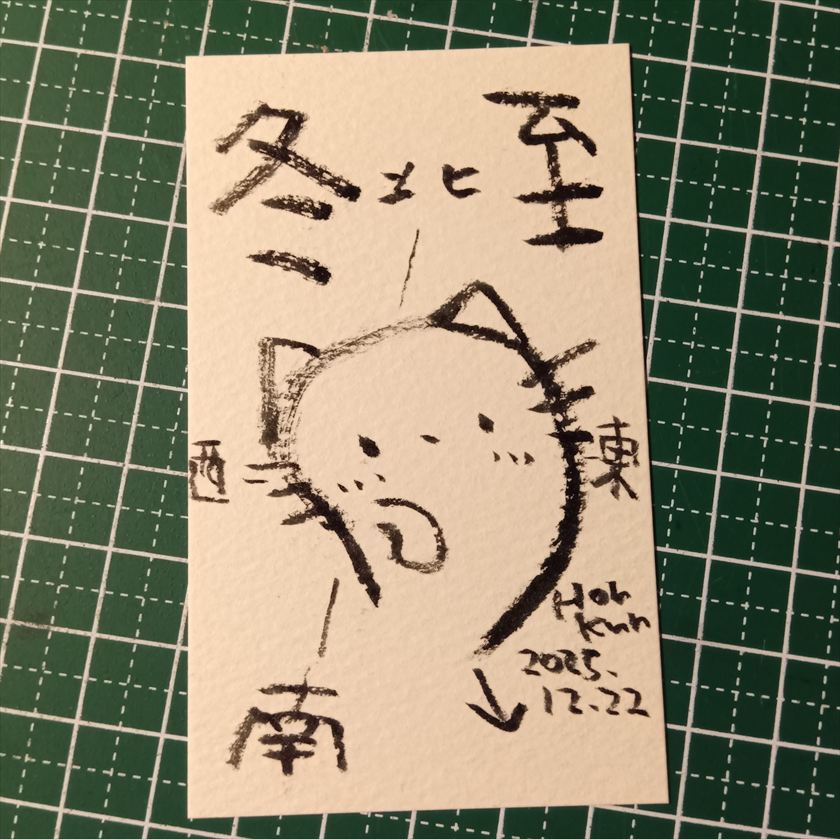 冬至
北
西
東
南
Hoh
Kun
2025.
12.22